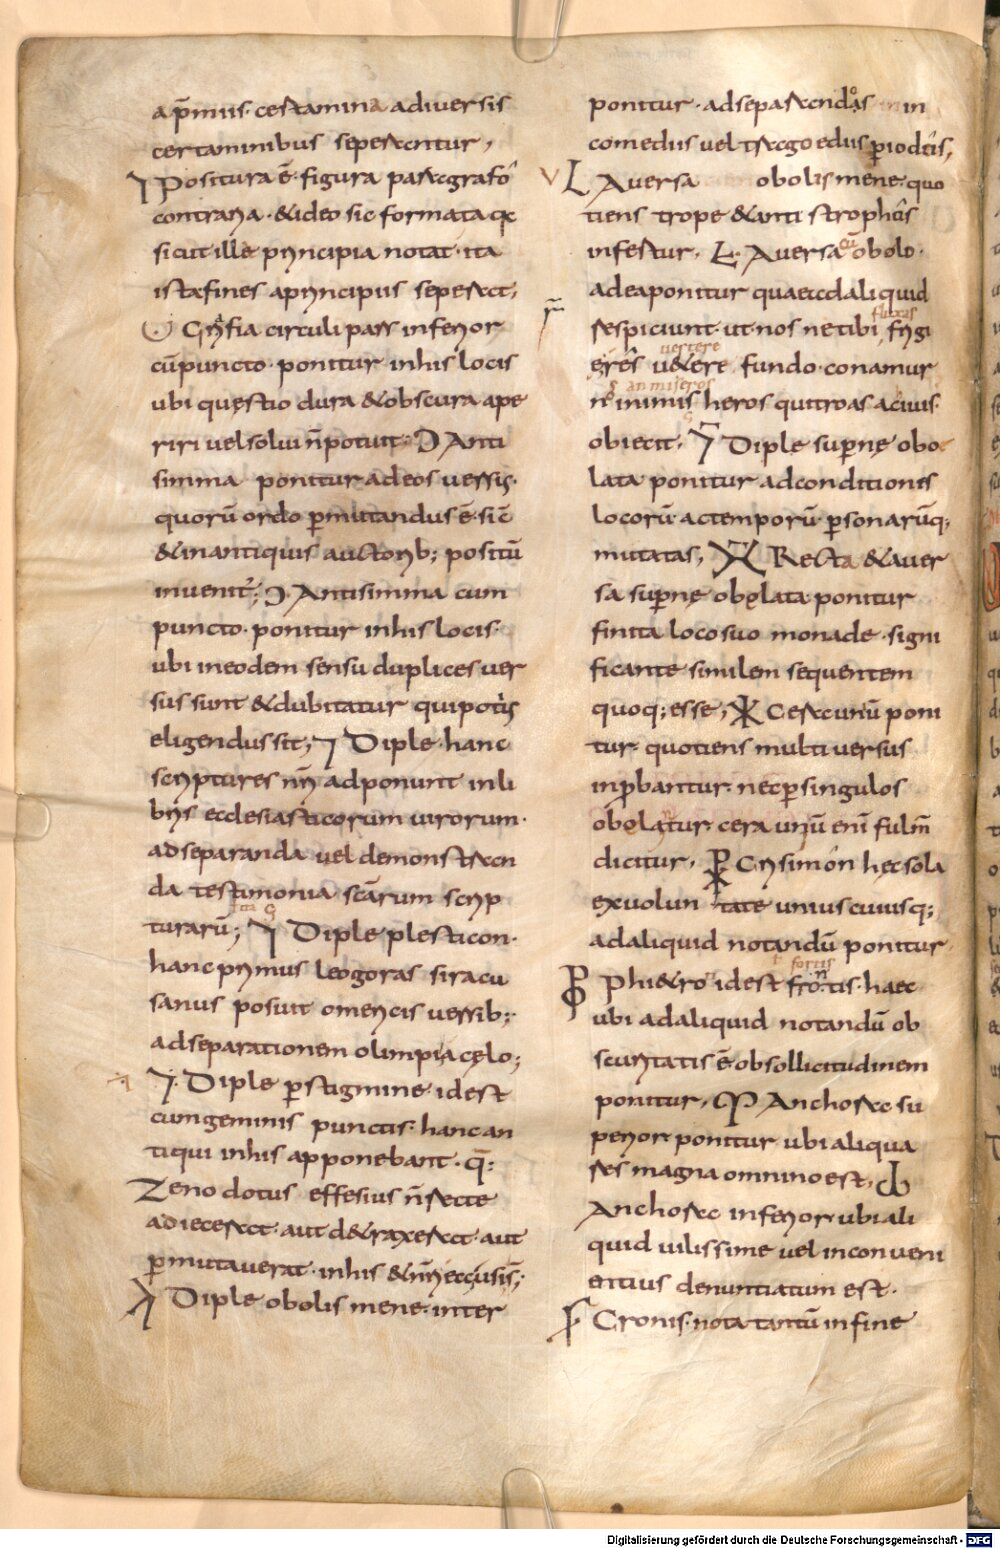 a p̄mis. certamina adiversis
certaminibus seperentur,
Positura ē. figura paragrafo
contraria. & ideo sic formata q̄
sicut ille principia notat. ita
ista fines aprincipiis seperat;
Crifia circuli pars inferior
cū puncto. ponitur in his locis
ubi quęstio dura & obscura ape
riri vel solvi n̄ potuit. Anti
simma ponitur ad eos versus.
quorū ordo p̄mutandus ē. sic
& in antiquis auctorib; positū
invenit; Antisimma cum
puncto. ponitur in his locis.
ubi in eodem sensu duplices ver
sus sunt & dubitatur qui potis
eligendus sit; Diple. hanc
scriptures nr̄i adponunt in li
bris ecclesiasticorum virorum.
ad separanda vel demonstran
da testimonia scārum scrip
turarū; Diple plesticon.
hanc primus leogoras siracu
sanus posuit omericis versib;.
ad separationem olimpia cęlo;
Diple p̄stigmine. id est
cum geminis punctis. hanc an
tiqui in his apponebant. q̄:
Zenodotus effesius n̄ recte
adiecerat. aut d&raxerat. aut
p̄mutaverat. in his & nr̄i
Diple obolismene. inter
ponitur. ad separandos in
comediis vel tragoediis piodos,
Aversa obolismene. quo
tiens trope & antistrophis
infertur. Aversa cū obolo.
ad ea ponitur quae ad aliquid
respiciunt. ut. nos ne tibi frigi
eres vertere fundo. conamur
nos miseros heros qui troas acivis.
obiecit. Diple supne obo
lata ponitur ad conditiones
locorū. ac temporū. psonarūq;
mutatas, Recta & aver
sa supne obolata ponitur
finita loco suo monade. signi
ficante similem sequentem
quoq; esse; Ceraunū poni
tur. quotiens multi versus
inprobantur. nec p singulos
obolatur. cera unū enī fulm̄
dicitur, Crisimon hęc sola
ex volun tate unius cuiusq;
ad aliquid notandū ponitur.
Phi & ro id est frontis. haec
ubi ad aliquid notandū ob
scuritatis ē. ob sollicitudinem
ponitur. Anchora su
perior. ponitur ubi aliqua
res magna omnino est,
Anchora inferior. ubi ali
quid vilissime vel inconveni
entius denuntiatum est.
Cronis. nota tantū in fine
Digitalisierung gefördert durch die Deutsche Forschungsgemeinschaft - DFG